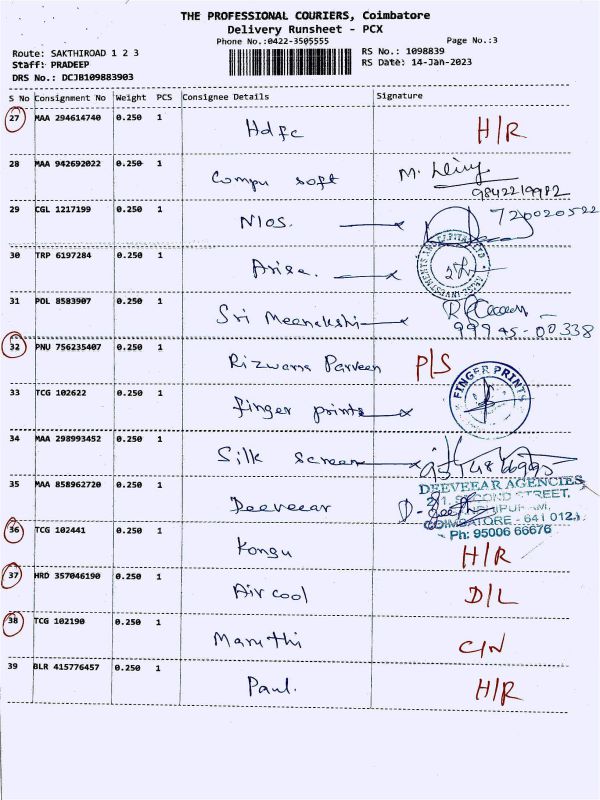 THE PROFESSIONAL COURIERS, Coimbatore
Delivery Runsheet - PCX
Phone No.:0422-3505555
Page No.:3
Route: SAKTHIROAD 1 2 3
RS No.: 1098839
Staff: PRADEEP
RS Date: 14-Jan-2023
DRS No.: DCJB109883903
S No Consignment No Weight PCS Consignee Details Signature
27 MAA 294614740 0.250 1 Hdfc H/R
28 MAA 942692022 0.250 1 Compu soft M.
9842219982
29 CGL 1217199 0.250 1 NIOS. 720020522
30 TRP 6197284 0.250 1 Arise.
31 POL 8583907 0.250 1 Sri Meenakshi
99945-00338
32 PNU 756235407 0.250 1 Rizwana Parveen P/S
33 TCG 102622 0.250 1 finger prints FINGER PRINTS
34 MAA 298993452 0.250 1 Silk screen
35 MAA 858962720 0.250 1 Deeveear DEEVEEAR AGENCIES
2/1, SECOND STREET,
COIMBATORE - 641 012.
Ph: 95006 66676
36 TCG 102441 0.250 1 Kongu H/R
37 HRD 357046190 0.250 1 Air cool D/L
38 TCG 102190 0.250 1 Maruthi C/N
39 BLR 415776457 0.250 1 Paul. H/R